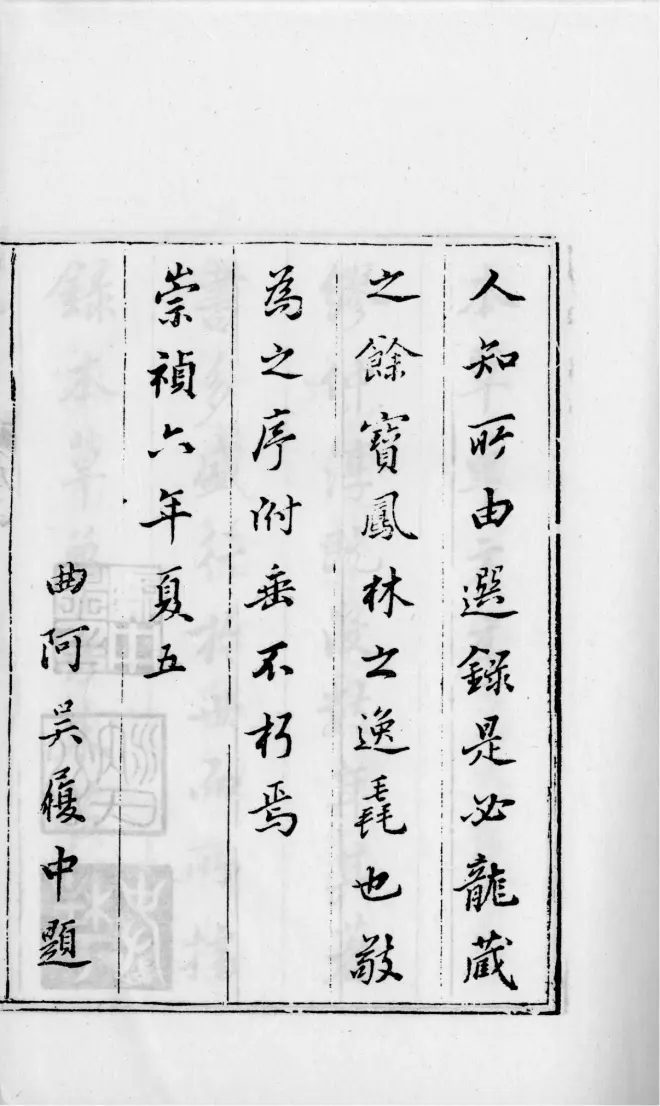 人知所由選錄是必龍蔵
之餘寳鳳林之逸毳也敬
為之序附垂不朽焉
崇禎六年夏五
曲阿吴履中題